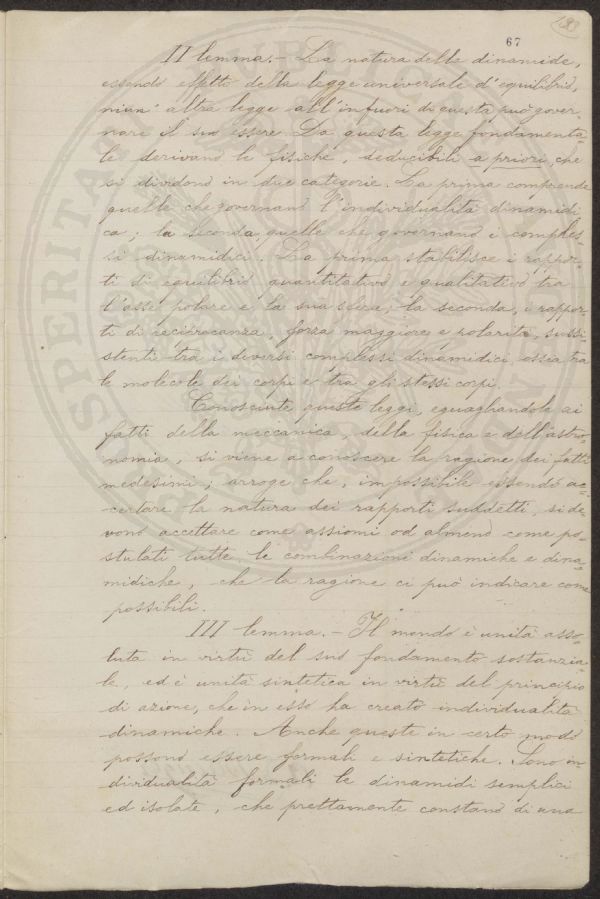 67
II lemma. – La natura delle dinamide,
essendo effetto della legge universale d'equilibrio,
niun' altra legge all'infuori di questa può gover-
nare il suo essere. Da questa legge fondamenta-
le derivano le fisiche, deducibili a priori, che
si dividono in due categorie. La prima comprende
quelle che governano l'individualità dinamidi-
ca; la seconda, quelle che governano i comples-
si dinamidici. La prima stabilisce i rappor-
ti di equilibrio quantitativo e qualitativo tra
l'asse polare e la sua sfera; la seconda, i rappor-
ti di reciprocanza, forza maggiore e polarità, sussi-
stenti tra i diversi complessi dinamidici ossia tra
le molecole dei corpi e tra gli stessi corpi.
Conosciute queste leggi, eguagliandole ai
fatti della meccanica, della fisica e dell'astro-
nomia, si viene a conoscere la ragione dei fatti
medesimi; arroge che, impossibile essendo ac-
certare la natura dei rapporti suddetti, si de-
vono accettare come assiomi od almeno come po-
stulati tutte le combinazioni dinamiche e dina-
midiche, che la ragione ci può indicare come
possibili.
III lemma. – Il mondo è unità asso-
luta in virtù del suo fondamento sostanzia-
le, ed è unità sintetica in virtù del principio
di azione, che in esso ha creato individualità
dinamiche. Anche queste in certo modo
possono essere formali e sintetiche. Sono in-
dividualità formali le dinamidi semplici
ed isolate, che prettamente constano di una